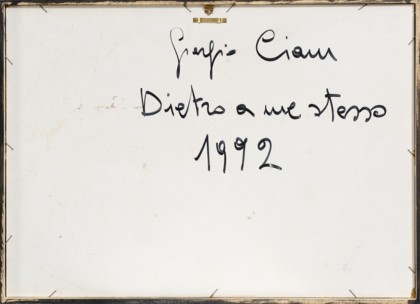 Giorgio Ciam
Dietro a me stesso
1992